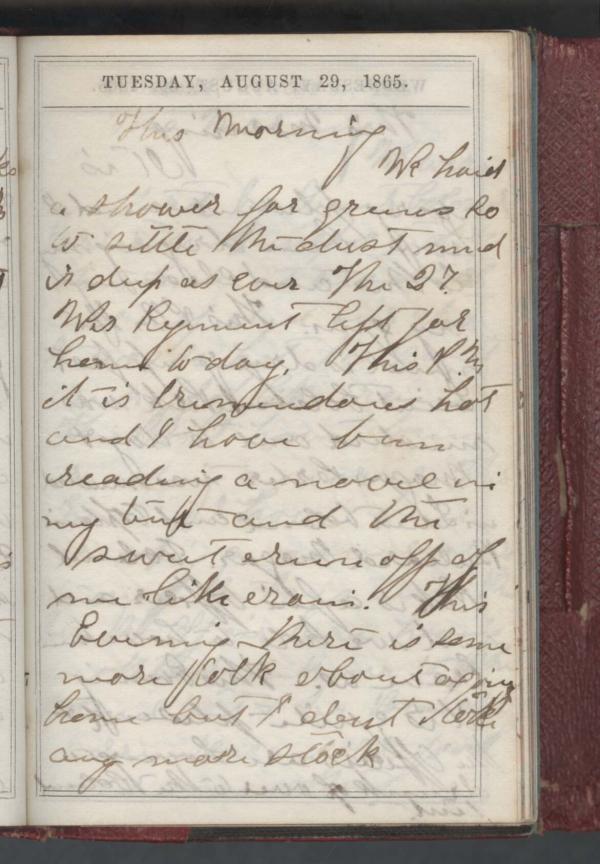 TUESDAY, AUGUST 29, 1865.
This Morning
We had
a shower for
to settle the dust mud
is deep as ever The 27
Wis Regiment left for
home to day. This P.M
it is tremendous hot
and I have been
reading a novel in
my tent and the
sweat runs off of
me like rain. This
Evening there is some
more talk about a going
home but I dont
any more stock